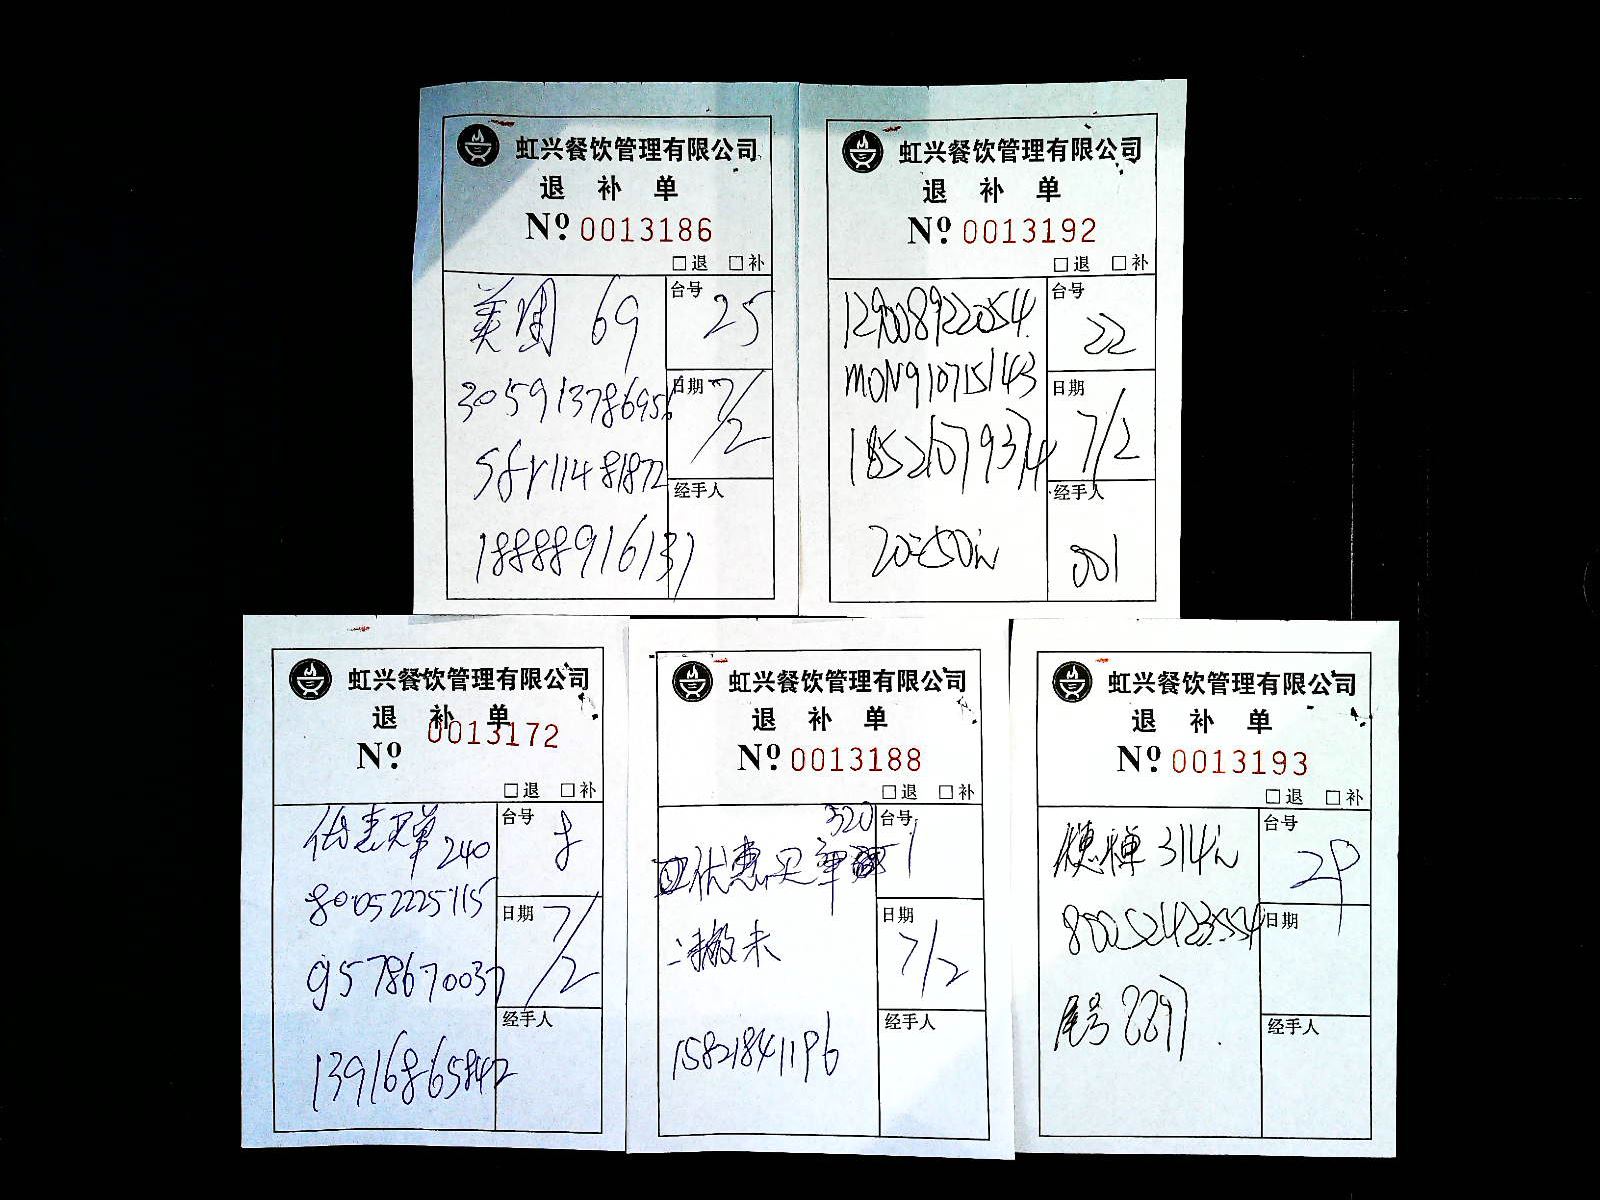 虹兴餐饮管理有限公司
退 补 单
Nº 0013186
□退 □补
美团 69
台号 25
305913786956
日期 7/2
sfr11481872
经手人
18888916137
虹兴餐饮管理有限公司
退 补 单
Nº 0013192
□退 □补
129008922054
台号 22
MON910715143
日期 7/2
18521679374
经手人
001
虹兴餐饮管理有限公司
退 补 单
Nº 0013172
□退 □补
优惠买单 240
台号 8
80052225115
日期 7/2
9578670037
经手人
13916865842
虹兴餐饮管理有限公司
退 补 单
Nº 0013188
□退 □补
320
台号 1
优惠买单
日期 7/2
经手人
15821841196
虹兴餐饮管理有限公司
退 补 单
Nº 0013193
□退 □补
314
台号 29
日期
尾号 8897
经手人